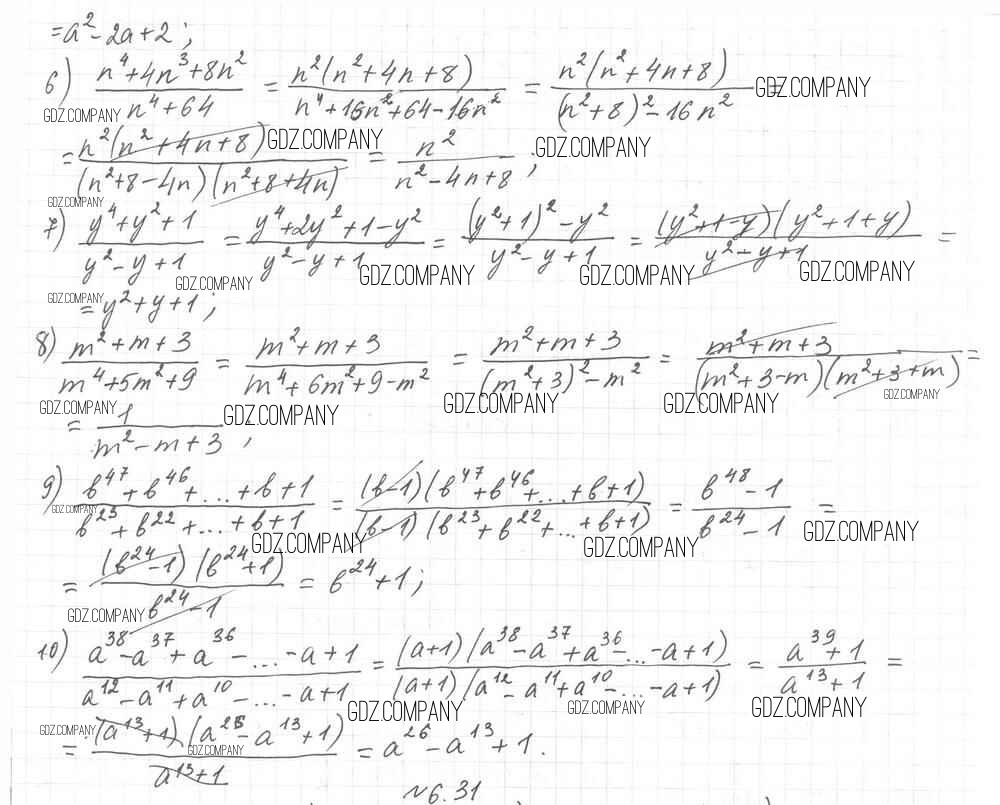 = a² - 2a + 2;
6) (n⁴ + 4n³ + 8n²)/(n⁴ + 64) = n²(n² + 4n + 8)/(n⁴ + 16n² + 64 - 16n²) = n²(n² + 4n + 8)/((n² + 8)² - 16n²) = GDZ.COMPANY GDZ.COMPANY
= n²(n² + 4n + 8)/((n² + 8 - 4n)(n² + 8 + 4n)) = n²/(n² - 4n + 8); GDZ.COMPANY GDZ.COMPANY GDZ.COMPANY
7) (y⁴ + y² + 1)/(y² - y + 1) = (y⁴ + 2y² + 1 - y²)/(y² - y + 1) = ((y² + 1)² - y²)/(y² - y + 1) = (y² + 1 - y)(y² + 1 + y)/(y² - y + 1) = GDZ.COMPANY GDZ.COMPANY GDZ.COMPANY GDZ.COMPANY
= y² + y + 1; GDZ.COMPANY
8) (m² + m + 3)/(m⁴ + 5m² + 9) = (m² + m + 3)/(m⁴ + 6m² + 9 - m²) = (m² + m + 3)/((m² + 3)² - m²) = (m² + m + 3)/((m² + 3 - m)(m² + 3 + m)) = GDZ.COMPANY GDZ.COMPANY GDZ.COMPANY GDZ.COMPANY
= 1/(m² - m + 3); GDZ.COMPANY
9) (b⁴⁷ + b⁴⁶ + ... + b + 1)/(b²³ + b²² + ... + b + 1) = (b - 1)(b⁴⁷ + b⁴⁶ + ... + b + 1)/((b - 1)(b²³ + b²² + ... + b + 1)) = (b⁴⁸ - 1)/(b²⁴ - 1) = GDZ.COMPANY GDZ.COMPANY GDZ.COMPANY GDZ.COMPANY
= (b²⁴ - 1)(b²⁴ + 1)/(b²⁴ - 1) = b²⁴ + 1; GDZ.COMPANY
10) (a³⁸ - a³⁷ + a³⁶ - ... - a + 1)/(a¹² - a¹¹ + a¹⁰ - ... - a + 1) = (a + 1)(a³⁸ - a³⁷ + a³⁶ - ... - a + 1)/((a + 1)(a¹² - a¹¹ + a¹⁰ - ... - a + 1)) = (a³⁹ + 1)/(a¹³ + 1) = GDZ.COMPANY GDZ.COMPANY GDZ.COMPANY
= (a¹³ + 1)(a²⁶ - a¹³ + 1)/(a¹³ + 1) = a²⁶ - a¹³ + 1. GDZ.COMPANY GDZ.COMPANY
№6.31